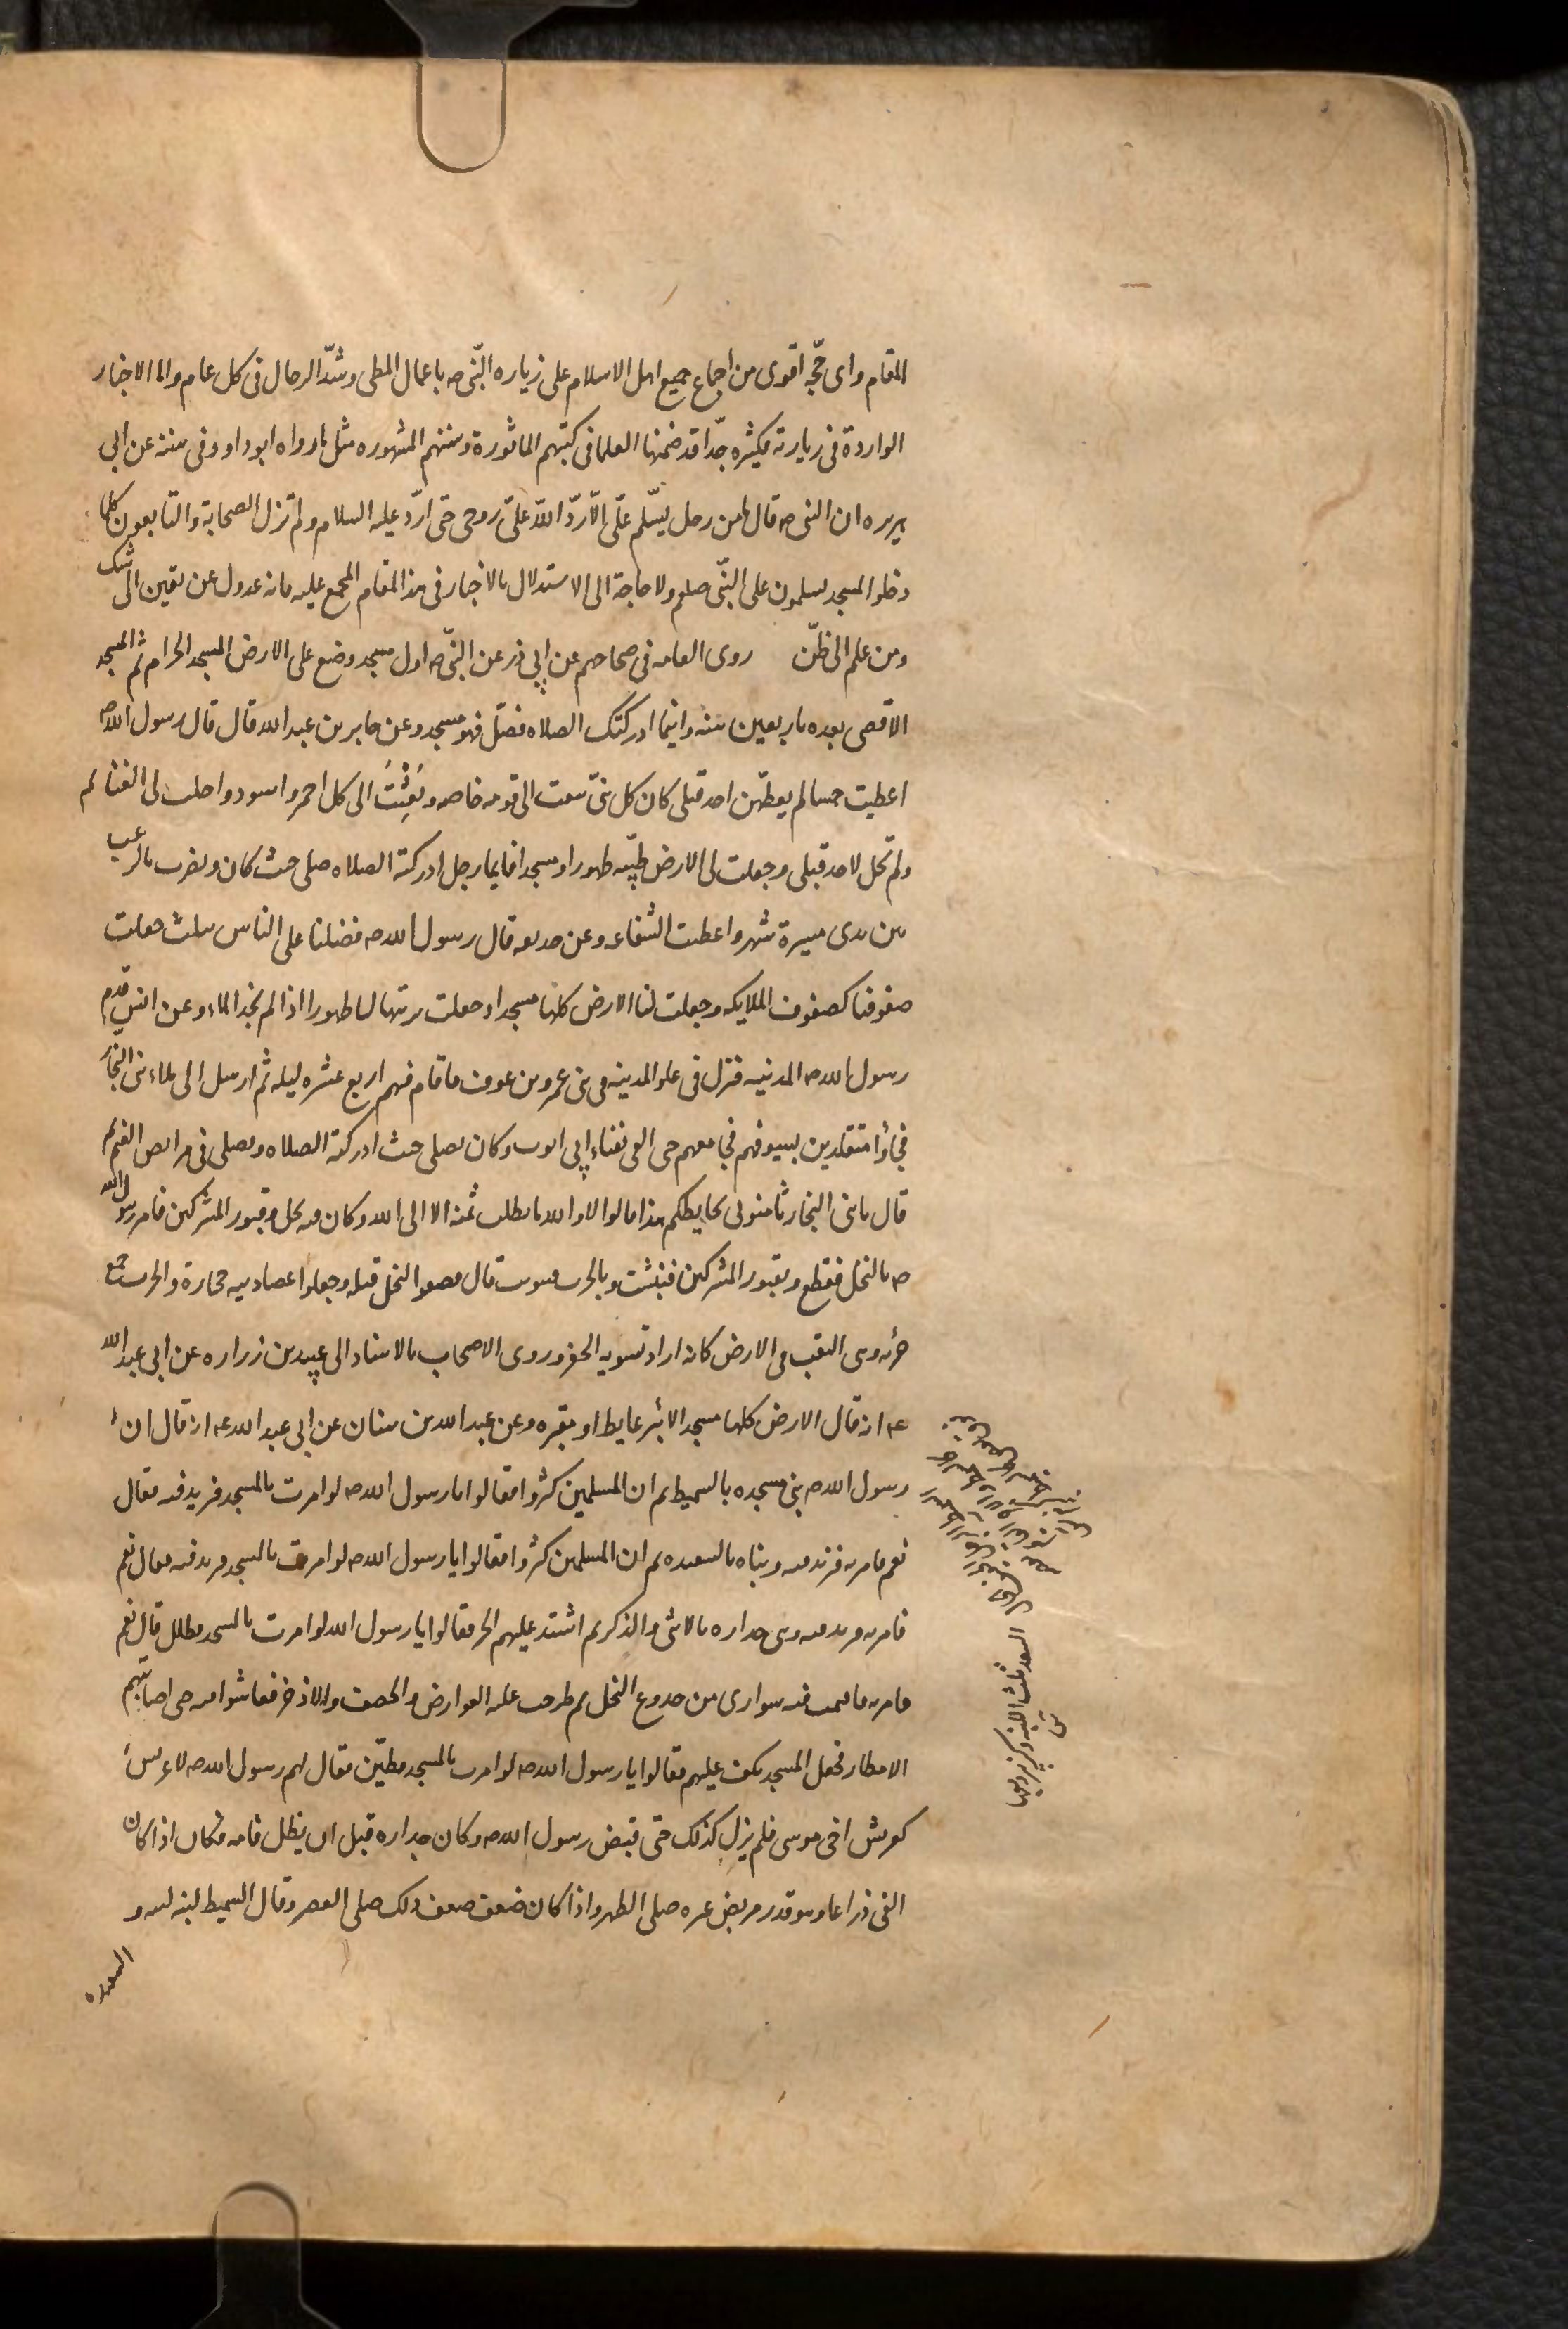 المقام واى حجّة اقوى من اجماع جميع اهل الاسلام على زياره النّبى صه باعمال المطى وشدّ الرحال فى كل عام واما الاخبار
الواردة فى زيارته فكثيره جدّا قد ضمنها العلما فى كتبهم الماثورة وسننهم المشهوره مثل ما رواه ابو داود فى سننه عن ابى
هريره ان النبى صه قال ما من رجل يسلّم علىّ الّا ردّ اللّه علىّ روحى حتى اردّ عليه السلام ولم تزل الصحابة والتابعون كلما
دخلوا المسجد يسلمون على النبّى صلعم ولا حاجة الى الاستدلال بالاخبار فى هذا المقام المجمع عليه فانه عدول عن يقين الى شك
ومن علم الى ظنّ روى العامه فى صحاحهم عن ابى ذر عن النبّى صه اول مسجد وضع على الارض المسجد الحرام ثم المسجد
الاقصى بعده باربعين سنه واينما ادركتك الصلاه فصلّ فهو مسجد وعن جابر بن عبد الله قال قال رسول الله صه
اعطيت خمسا لم يعطهن احد قبلى كان كل نبىّ يبعث الى قومه خاصه وبُعِثْتُ الى كل احمر واسود واحلت لى الغنايم
ولم تحل لاحد قبلى وجعلت لى الارض طيّبه طهورا ومسجدا فايما رجل ادركته الصلاه صلى حيث كان ونصرت بالرعب
بين يدى مسيرة شهر واعطيت الشفاعه وعن حذيفه قال رسول الله صه فضلنا على الناس بثلث جعلت
صفوفنا كصفوف الملايكه وجعلت لنا الارض كلها مسجدا وجعلت تربتها لنا طهورا اذا لم نجد الماء وعن انس قدم
رسول الله صه المدينه فنزل فى علو المدينه فى بنى عمرو بن عوف فاقام فيهم اربع عشره ليله ثم ارسل الى ملاء بنى النجار
فجاؤا متقلدين بسيوفهم فجا معهم حتى القى بفناء ابى ايوب وكان يصلى حيث ادركته الصلاه ويصلى فى مرابض الغنم ثم
قال يا بنى النجار ثامنونى بحايطكم هذا فقالوا لا والله ما نطلب ثمنه الا الى الله وكان فيه نخل وقبور المشركين فامر رسول الله
صه بالنخل فقطع وبقبور المشركين فنبشت وبالخرب فسويت قال فصفوا النخل قبله وجعلوا عضادتيه حجارة والخرب جمع
خربه وهى النقب فى الارض كانه اراد تسويه الحفر وروى الاصحاب بالاسناد الى عبيد بن زراره عن ابى عبد الله
عه انه قال الارض كلها مسجد الا بئر غايط او مقبره وعن عبد الله بن سنان عن ابى عبد الله عه انه قال ان
رسول الله صه بنى مسجده بالسميط ثم ان المسلمين كثروا فقالوا يا رسول الله صه لو امرت بالمسجد فزيد فيه فقال
نعم فامر به فزيد فيه وبناه بالسعيده ثم ان المسلمين كثروا فقالوا يا رسول الله صه لو امرت بالمسجد فزيد فيه فقال نعم
فامر به فزيد فيه وبنى جداره بالانثى والذكر ثم اشتد عليهم الحر فقالوا يا رسول الله لو امرت بالمسجد فظلل قال نعم
فامر به فاقيمت فيه سوارى من جذوع النخل ثم طرحت عليه العوارض والخصف والاذخر فعاشوا فيه حتى اصابتهم
الامطار فجعل المسجد يكف عليهم فقالوا يا رسول الله صه لو امرت بالمسجد فطيّن فقال لهم رسول الله صه لا عريش
كعريش اخى موسى فلم يزل كذلك حتى قبض رسول الله صه وكان جداره قبل ان يظلل قامه فكان اذا كان
الفئ ذراعا وهو قدر مربض عنز صلى الظهر واذا كان ضعف ذلك صلى العصر وقال السميط لبنه لبنه و
السعيده